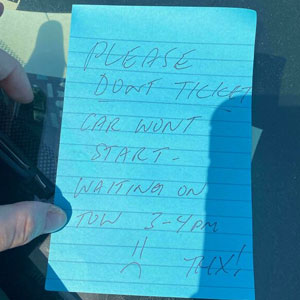 PLEASE
DONT TICKET
CAR WONT
START-
WAITING ON
TOW 3-4pm
THX!